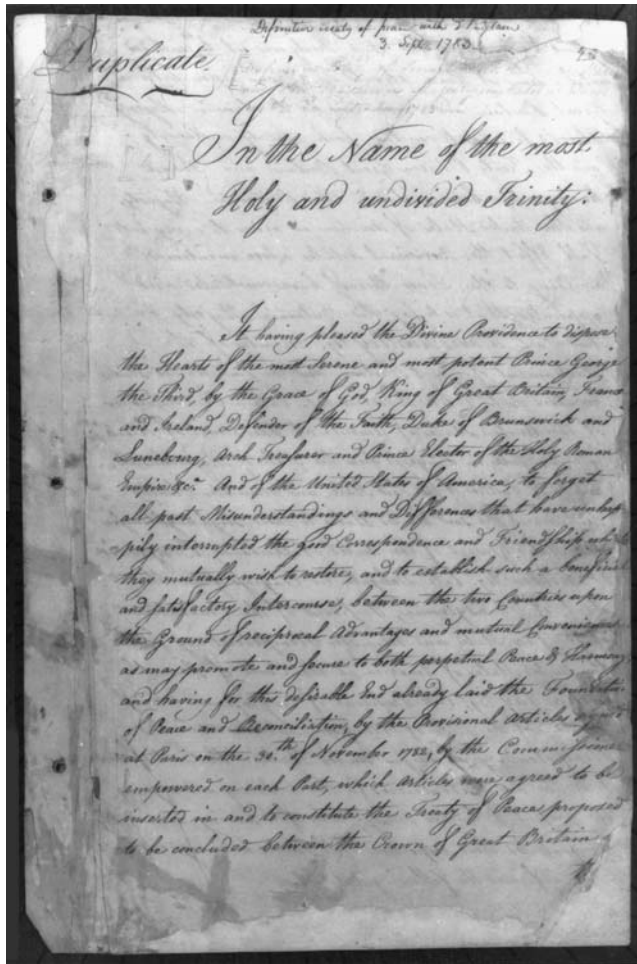 Definitive treaty of peace with England
3 Sept. 1783
Duplicate.
In the Name of the most
Holy and undivided Trinity:
It having pleased the Divine Providence to dispose
the Hearts of the most Serene and most potent Prince George
the Third, by the Grace of God, King of Great Britain, France
and Ireland, Defender of the Faith, Duke of Brunswick and
Lunebourg, Arch Treasurer and Prince Elector of the Holy Roman
Empire &ca. And of the United States of America, to forget
all past Misunderstandings and Differences that have unhap
pily interrupted the good Correspondence and Friendship which
they mutually wish to restore; and to establish such a beneficial
and satisfactory Intercourse, between the two Countries upon
the Ground of reciprocal Advantages and mutual Convenience
as may promote and secure to both perpetual Peace & Harmony,
and having for this desirable End already laid the Foundation
of Peace and Reconciliation, by the Provisional Articles signed
at Paris on the 30.th of November 1782, by the Commissioners
empowered on each Part, which Articles were agreed to be
inserted in and to constitute the Treaty of Peace proposed
to be concluded between the Crown of Great Britain